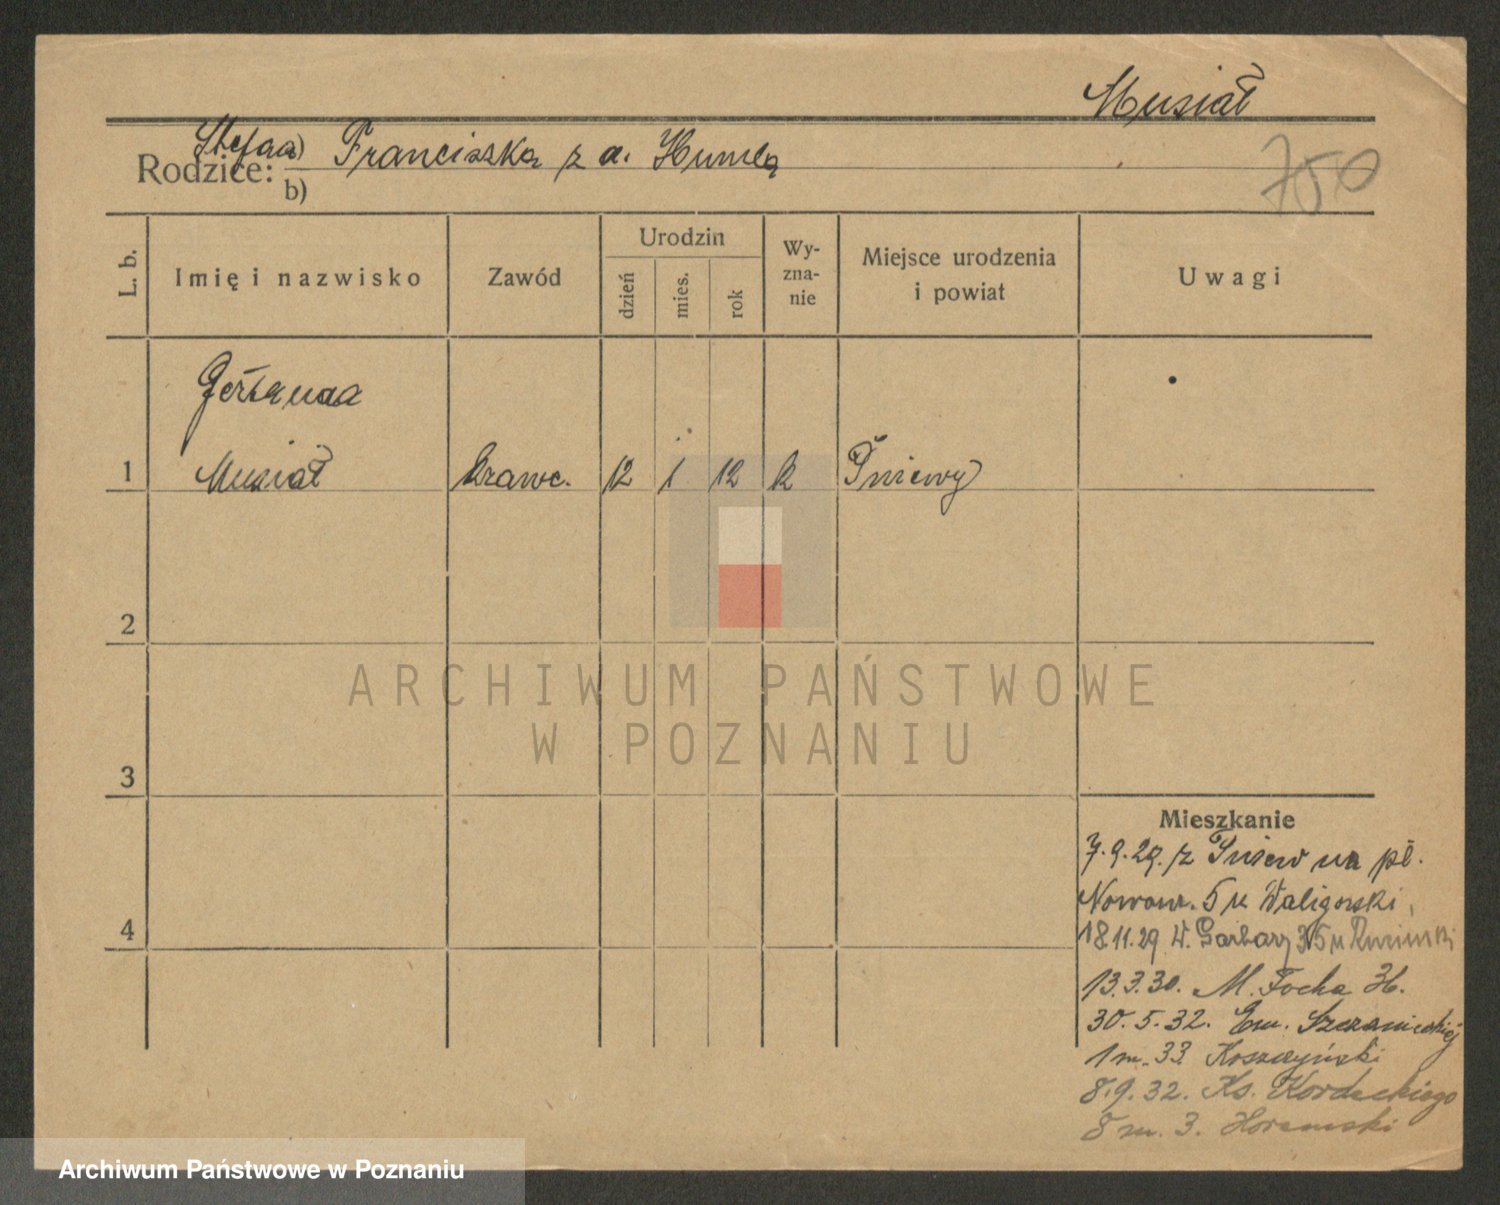 Musiał
Stefan Franciszka z d. Humla
Rodzice: a)
b)
750
L. b.
Imię i nazwisko
Zawód
Urodzin
dzień
mies.
rok
Wy-
zna-
nie
Miejsce urodzenia
i powiat
Uwagi
Gertruda
1 Musiał krawc. 12 1 12 k Pniewy
2
3
4
Mieszkanie
7.9.29. z Pniew na pl.
Nowom. 5 u Waligorski
18.11.29 W. Garbary 35 u
13.3.30. M. Focha
30.5.32. Em. Szczanieckiej
1 m. 33 Koszczyński
8.9.32. Ks. Kordeckiego
8 m. 3.
ARCHIWUM PAŃSTWOWE
W POZNANIU
Archiwum Państwowe w Poznaniu